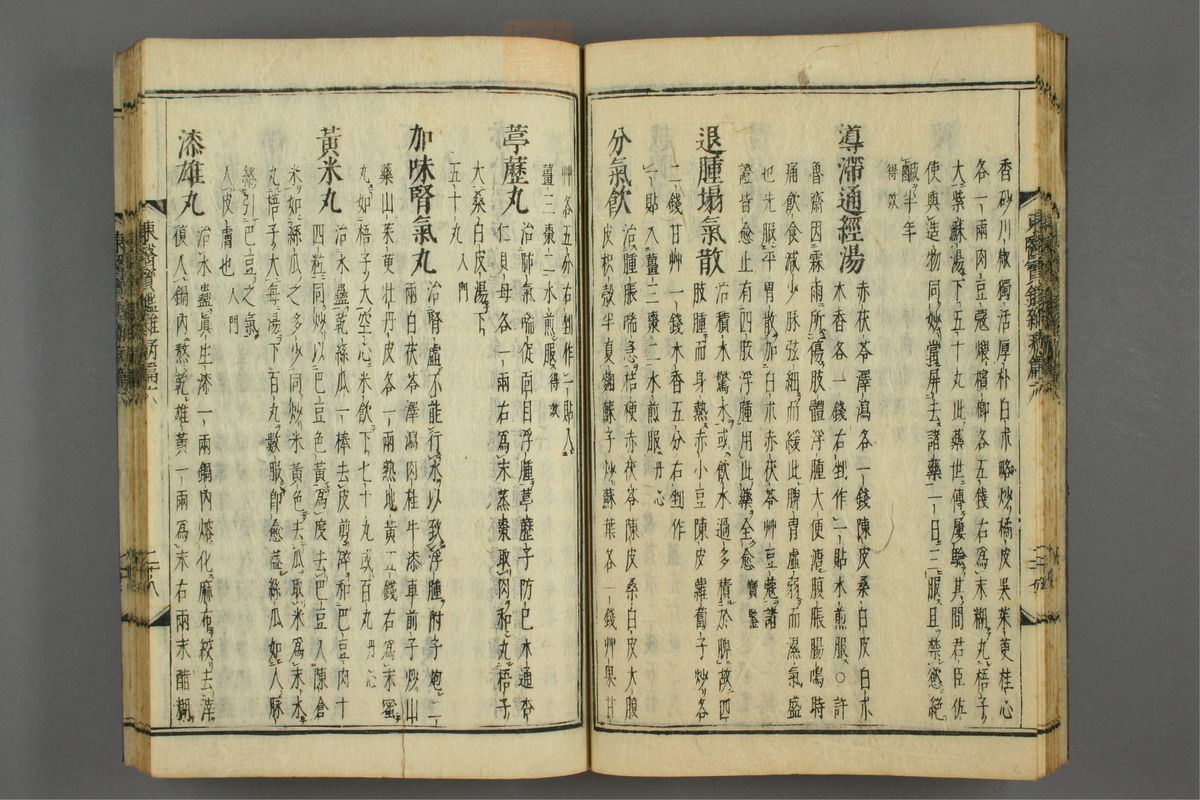 香砂川椒獨活厚朴白朮略炒橘皮吳茱萸桂心
各一兩肉豆蔻煨檳榔各五錢右爲末糊丸梧子
大紫蘇湯下五十丸此藥世傳屢驗其間君臣佐
使與造物同妙當屏去諸藥一日三服且禁慾絶
鹹半年
得效
導滯通經湯 木香各一錢右剉作一貼水煎服○許
赤茯苓澤瀉各一錢陳皮桑白皮白朮
魯齋因霖雨所傷肢體浮腫大便溏腹脹腸鳴時
痛飮食減少脉弦細而緩此脾胃虛弱而濕氣盛
也先服平胃散加白朮赤茯苓艸豆蔻諸
證皆愈止有四肢浮腫用此藥全愈 寶鑒
退腫塌氣散 治積水驚水或飮水過多積於脾故四
肢腫而身熱赤小豆陳皮蘿葍子炒各
二錢甘艸一錢木香五分右剉作
一貼入薑三棗二水煎服 丹心
分氣飮 治腫脹喘急桔梗赤茯苓陳皮桑白皮大腹
皮枳殼半夏麴蘇子炒蘇葉各一錢艸果甘
艸各五分右剉作二貼入
薑三棗二水煎服 得效
葶藶丸 治肺氣喘促面目浮腫葶藶子防己木通杏
仁貝母各一兩右爲末蒸棗取肉和丸梧子
大桑白皮湯下
五十丸 入門
加味腎氣丸 治腎虛不能行水以致浮腫附子炮二
兩白茯苓澤瀉肉桂牛漆車前子炒山
藥山茱萸牡丹皮各一兩熟地黃五錢右爲末蜜
丸如梧子大空心米飮下七十丸或百丸 丹心
黃米丸 治水蠱乾絲瓜一棒去皮剪碎和巴豆肉十
四粒同炒以巴豆色黃爲度去巴豆入陳倉
米如絲瓜之多少同炒米黃色去瓜取米爲末水
丸梧子大每湯下百丸數服卽愈蓋絲瓜如人脉
絡引巴豆之氣
入皮膚也 入門
漆雄丸 治水蠱眞生漆一兩鍋內熔化麻布絞去滓
復入鍋內熬乾雄黃一兩爲末右兩末醋糊
東醫寶鑑雜病篇六